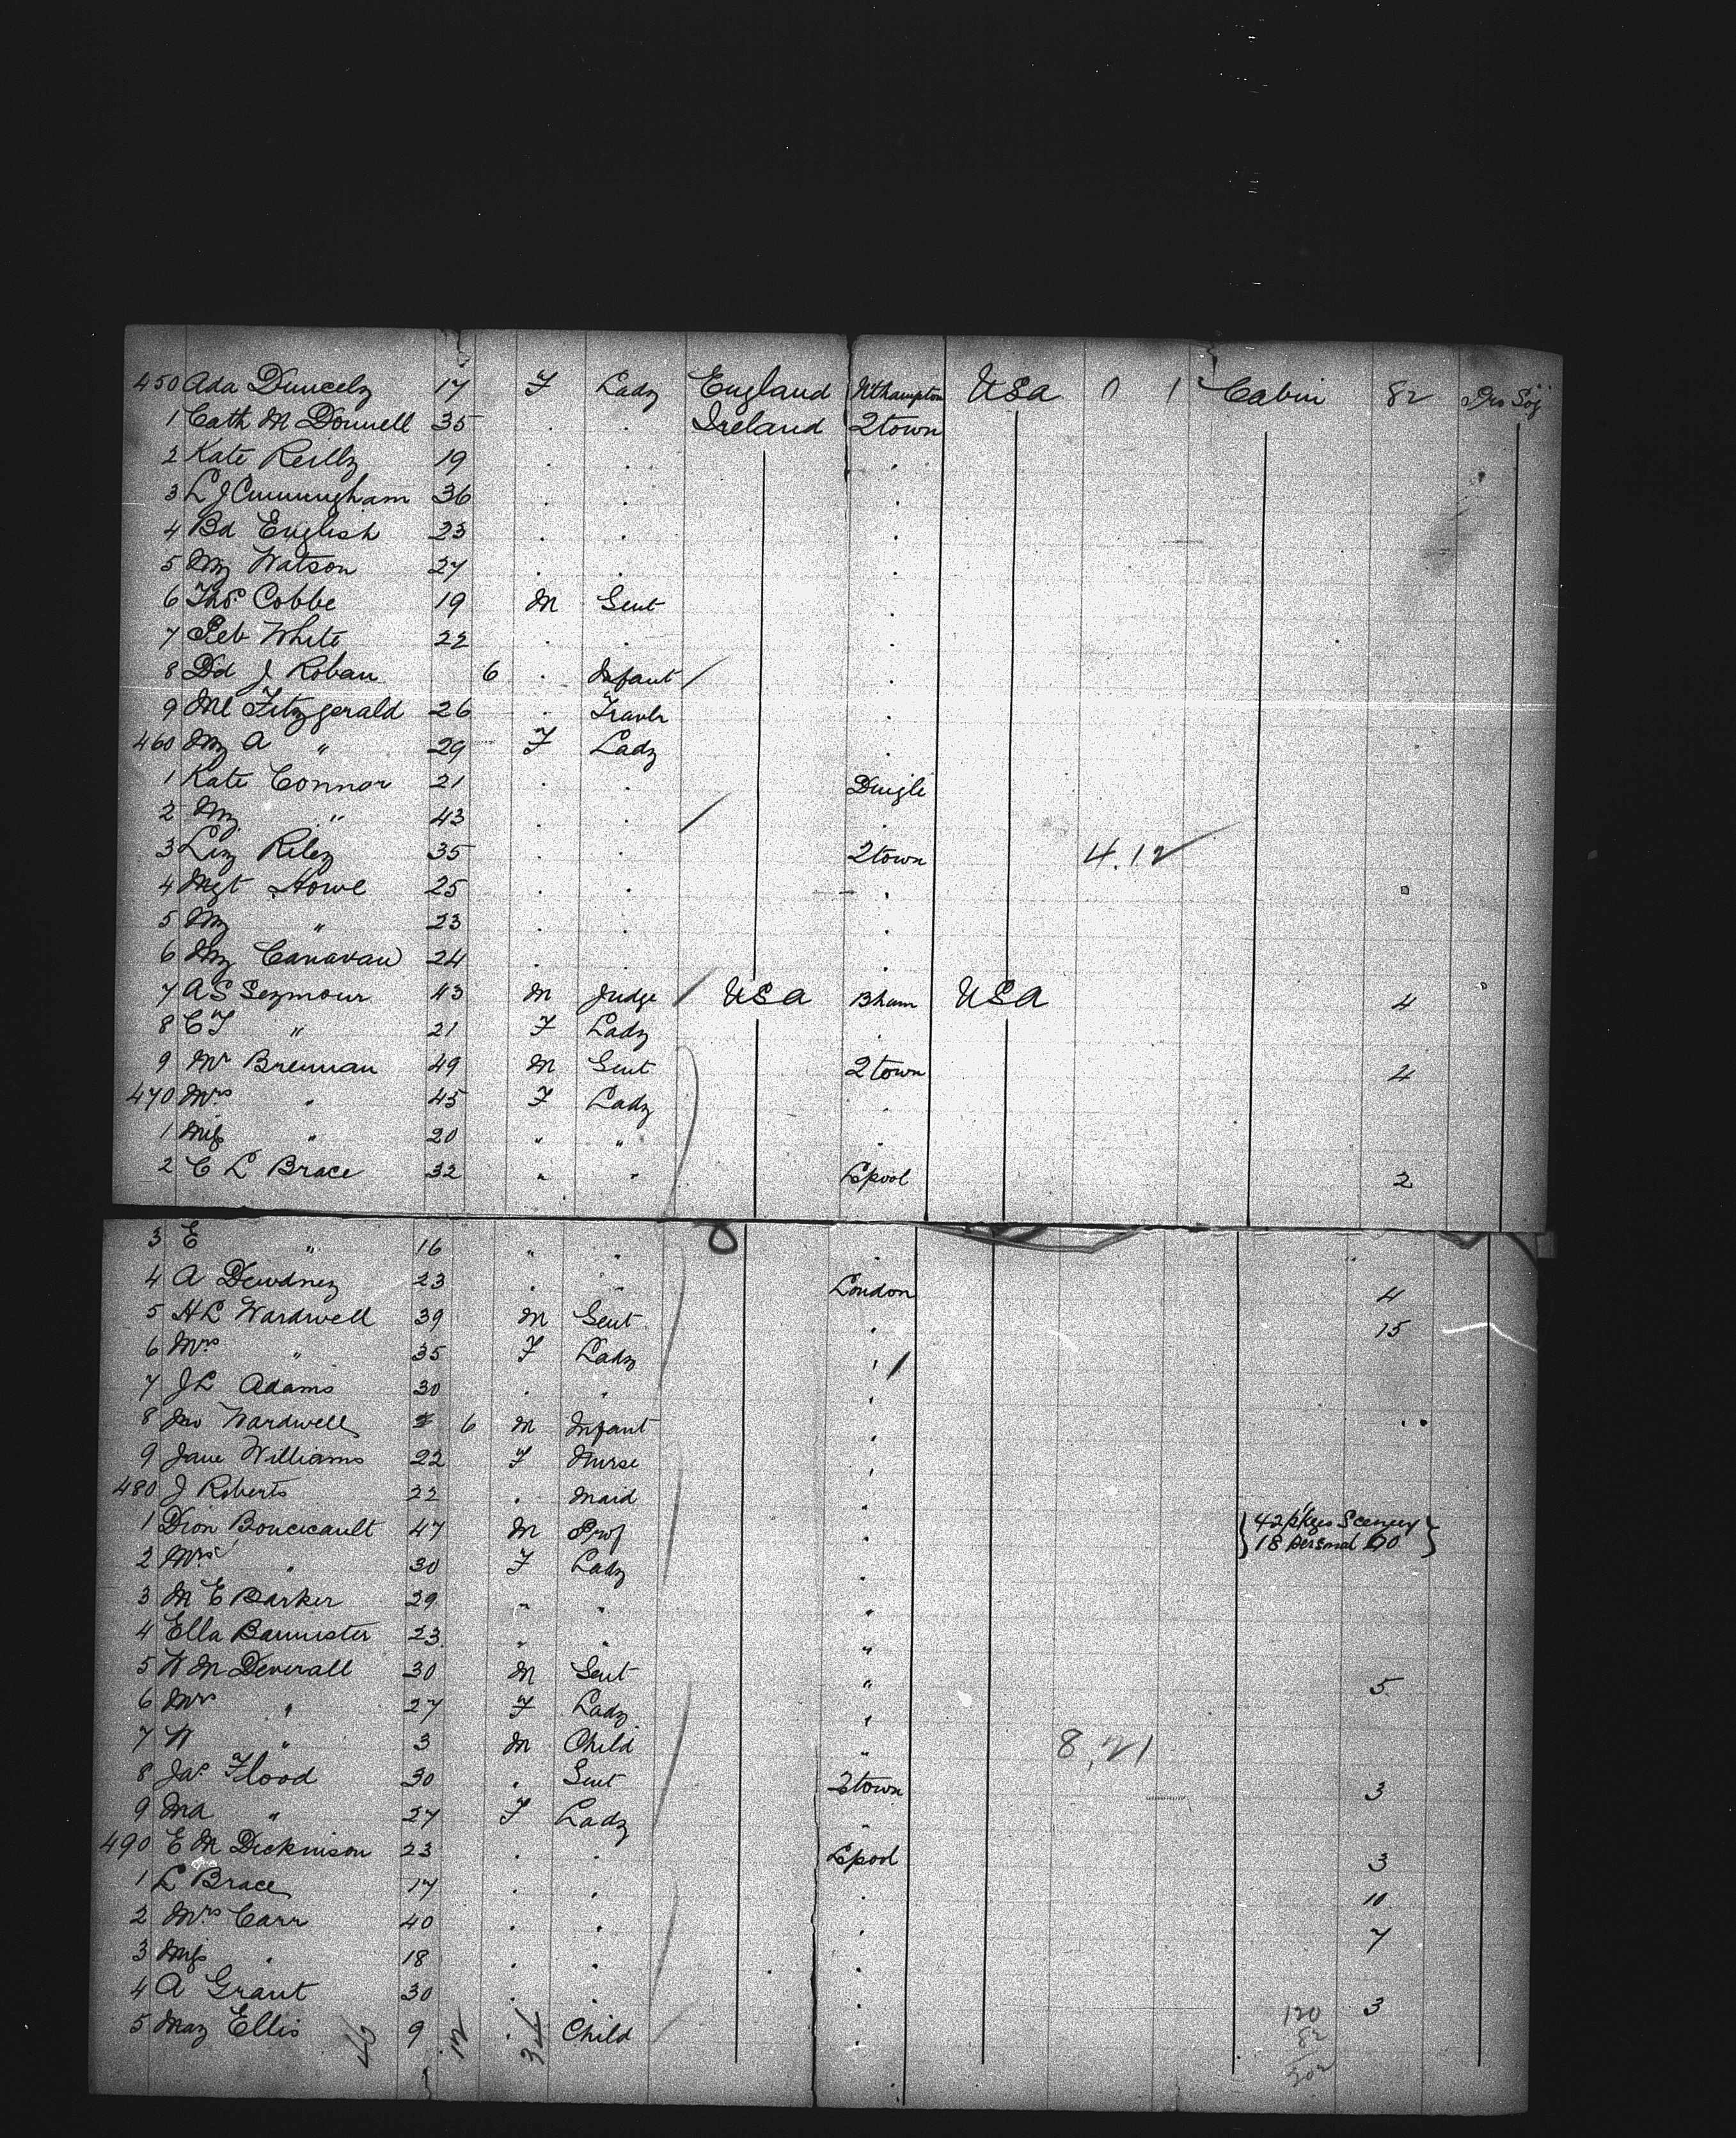 450 Ada Duncely 17 F Lady England Nthampton USA 0 1 Cabin 82 Pro Soj
1 Cath McDonnell 35 . . Ireland 2town
2 Kate Reilly 19 . . .
3 L J Cunningham 36 . . .
4 Bd English 23 . . .
5 My Watson 27 . . .
6 Thos Cobbe 19 M Gent .
7 White 22 . . .
8 Dd J Roban 6 . Infant .
9 Ml Fitzgerald 26 . Travlr .
460 My A " 29 F Lady .
1 Kate Connor 21 . . Dingle
2 My " 43 . . .
3 Liz Riley 35 . . 2town 4.12
4 Mgt Howe 25 . . .
5 My " 23 . . .
6 My Canavan 24 . . .
7 A S Seymour 43 M Judge USA Bham USA 4
8 C F " 21 F Lady .
9 Mr Brennan 49 M Gent 2town 4
470 Mrs " 45 F Lady .
1 Miss " 20 " " .
2 C L Brace 32 " " Lpool 2
3 E " 16 " " .
4 A Dewdney 23 . . London 4
5 H L Wardwell 39 M Gent . 15
6 Mrs " 35 F Lady .
7 J L Adams 30 . . .
8 Jno Wardwell 6 M Infant .
9 Jane Williams 22 F Nurse .
480 J Roberts 22 . Maid .
1 Dion Boucicault 47 M Prof . { 42 pkges Scenery
18 personal DO }
2 Mrs " 30 F Lady .
3 M E Barker 29 " " "
4 Ella Bannister 23 " " "
5 W M Deverall 30 M Gent " 5
6 Mrs " 27 F Lady "
7 W " 3 M Child " 8,21
8 Jas Flood 30 . Gent 2town 3
9 Ma " 27 F Lady "
490 E M Dickinson 23 . . Lpool 3
1 L Brace 17 . . . 10
2 Mrs Carr 40 . . . 7
3 Miss " 18 . . .
4 A Grant 30 . . . 3
5 May Ellis 9 . Child .
40 12 34
120
82
202